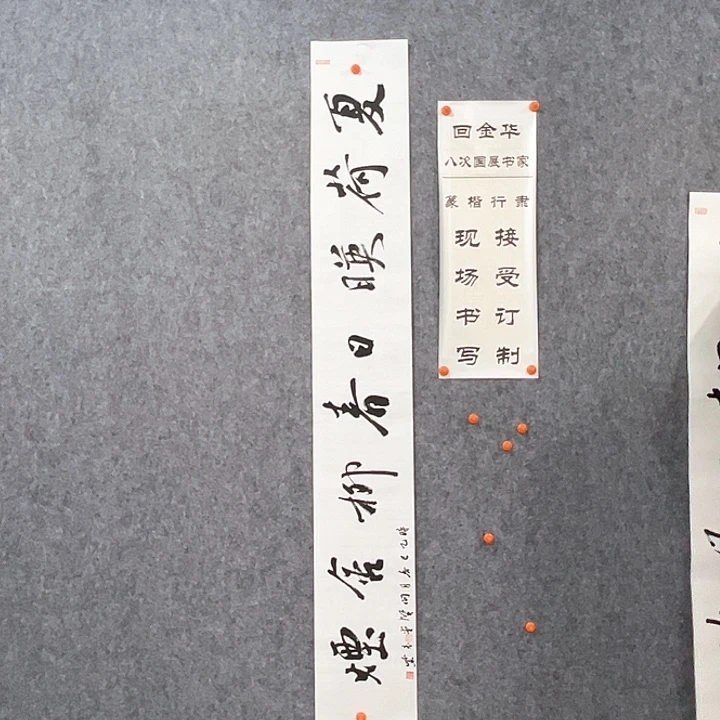 夏荷暎日春柳含煙
回金华
八次国展书家
篆楷行隶
现场书写
接受订制